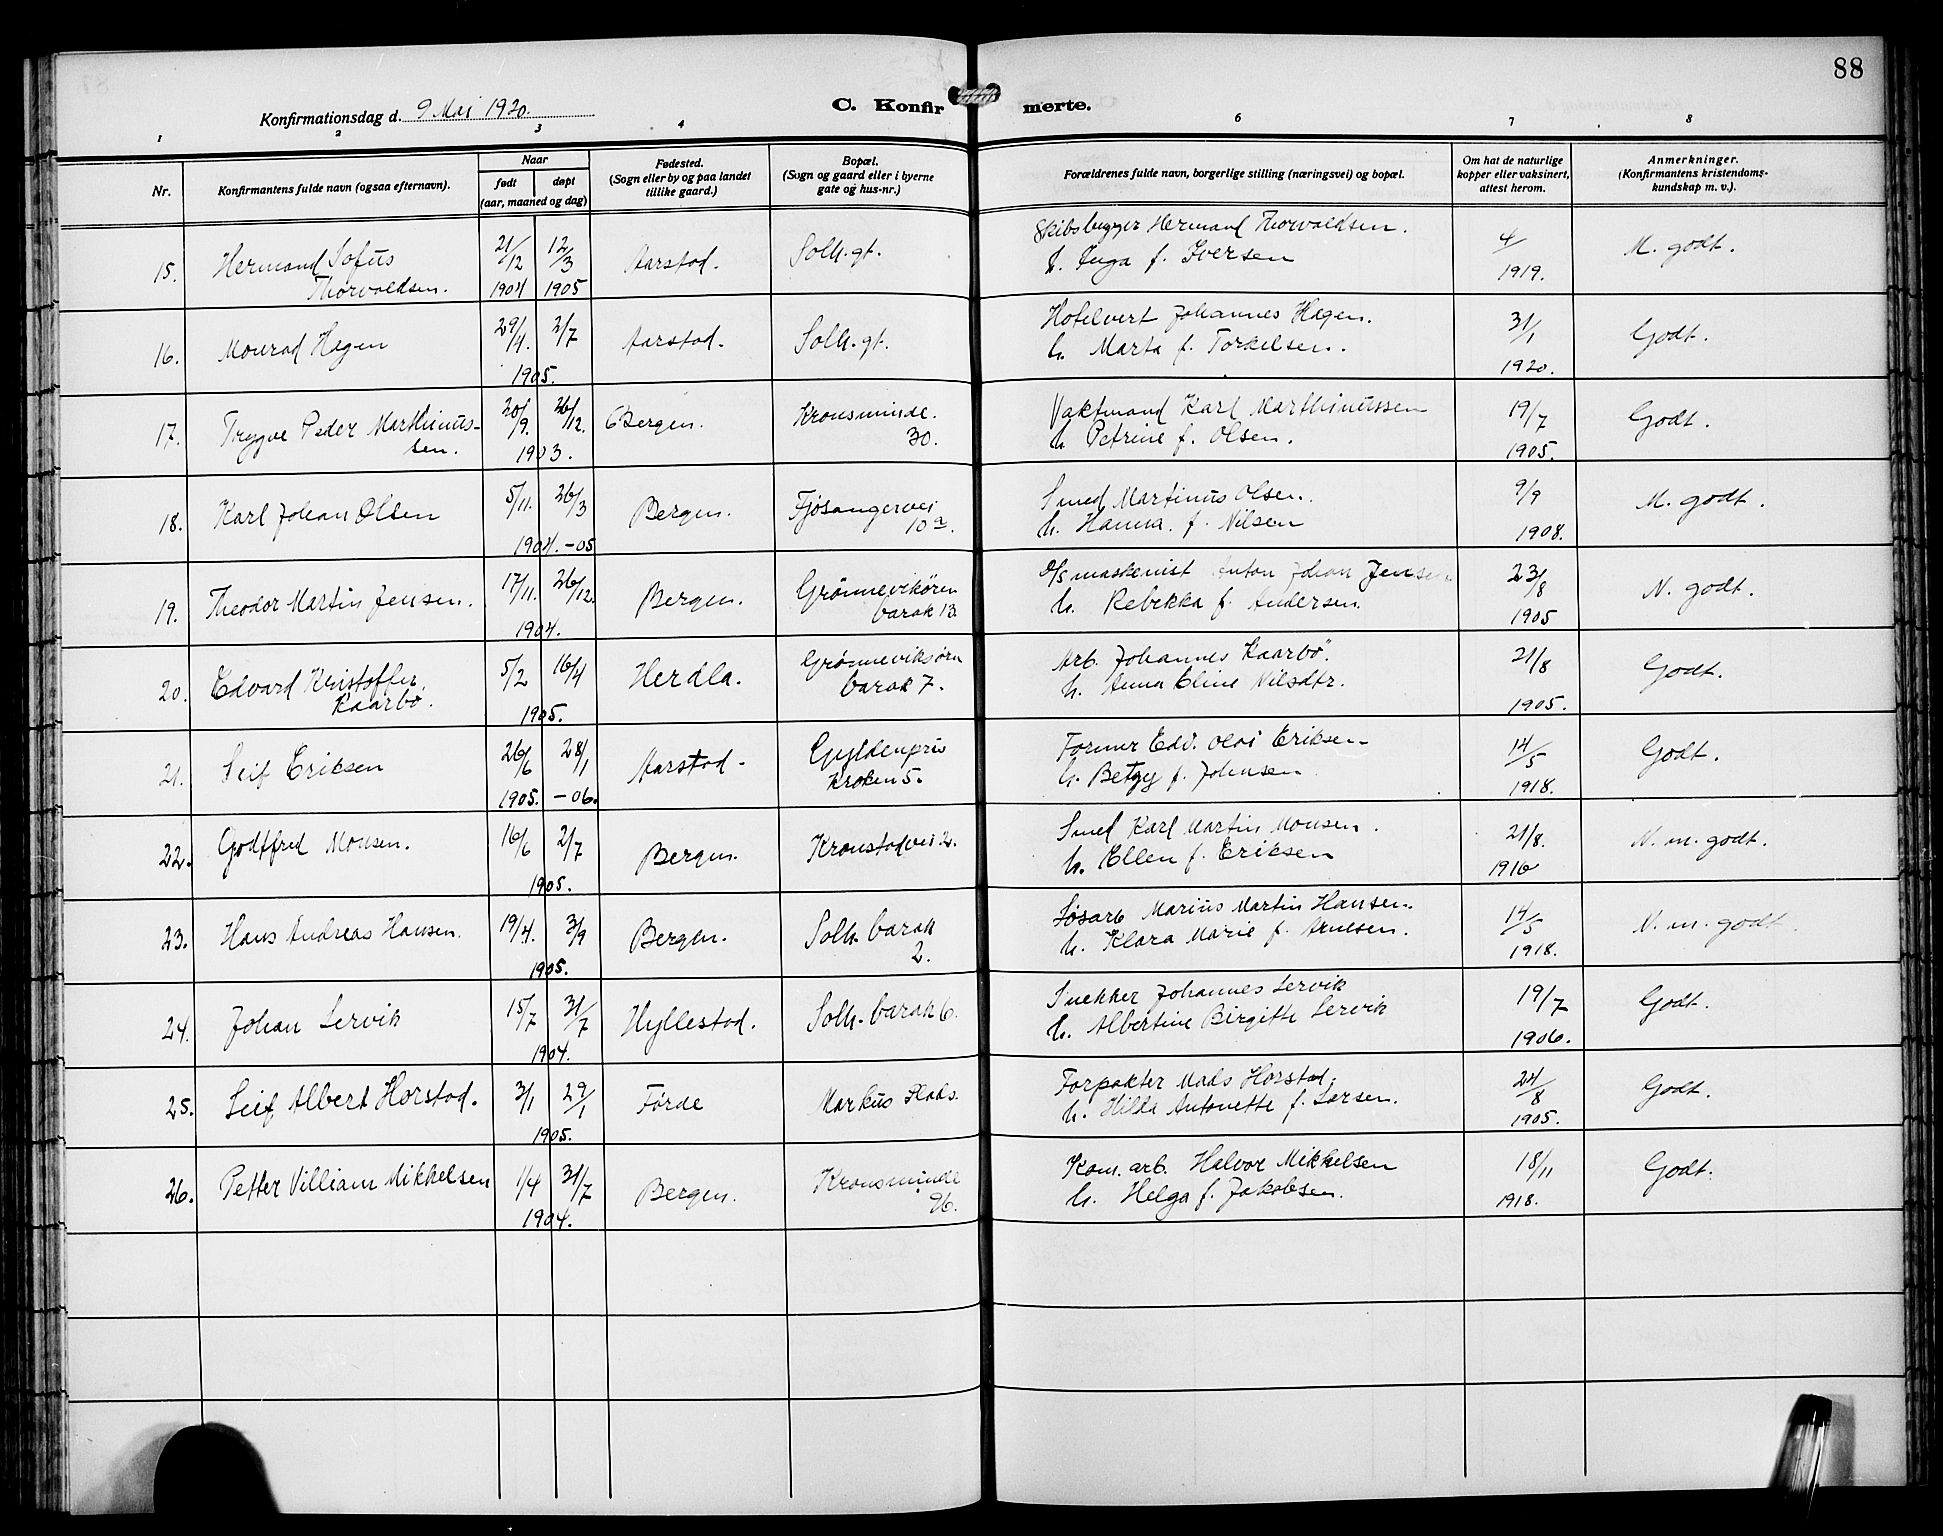 88
Konfirmationsdag d. 9 Mai 1920.
C. Konfirmerte.
1 2 3 4 6 7 8
Nr. Konfirmantens fulde navn (ogsaa efternavn). Naar født døpt (aar, maaned og dag) Fødested. (Sogn eller by og paa landet tillike gaard.) Bopæl. (Sogn og gaard eller i byerne gate og hus-nr.) Forældrenes fulde navn, borgerlige stilling (næringsvei) og bopæl. Om hat de naturlige kopper eller vaksinert, attest herom. Anmerkninger. (Konfirmantens kristendoms-kundskap m. v.).
15. Hermand Sofus Thorvaldsen. 21/12 1904 12/3 1905 Aarstad. Solh. gt. Skibsbygger Hermand Thorvaldsen. h. Inga f. Iversen 4/ 1919. M. godt.
16. Monrad Hagen 29/4. 2/7 1905. Aarstad. Solh. gt. Hotelvert Johannes Hagen. h. Marta f. Torkelsen. 31/1 1920. Godt.
17. Trygve Peder Marthinussen. 20/9. 26/12. 1903. Bergen. Kronsminde. 30. Vaktmand Karl Marthinussen h. Petrine f. Olsen. 19/7 1905. Godt.
18. Karl Johan Olsen 5/11. 26/3 1904.-05 Bergen. Fjøsangervei 10 a. Smed Martinus Olsen. h. Hanna. f. Nilsen 9/9 1908. M. godt.
19. Theodor Martin Jensen. 17/11. 26/12. 1904. Bergen. Grønnevikøren barak 13. D/S maskenist Anton Johan Jensen h. Rebekka f. Andersen. 23/8 1905 N. godt.
20. Edvard Kristoffer Kaarbø. 5/2 16/4 1905. Herdla. Grønneviksørn barak 7. Arb. Johannes Kaarbö. h. Anna Eline Nilsdtr. 21/8 1905. Godt.
21. Leif Eriksen 26/6 1905. 28/1 -06. Aarstad. Gyldenpris Kroken 5. Former Edv. Olai Eriksen h. Betzy f. Johnsen 14/5 1918. Godt.
22. Godtfred Monsen. 16/6 2/7 1905. Bergen. Kronstadvei 2. Smed Karl Martin Monsen. h. Ellen f. Eriksen 21/8. 1916 N. m. godt.
23. Hans Andreas Hansen. 19/4. 3/9 1905. Bergen. Solh. barak 2. Løsarb Marius Martin Hansen. h. Klara Marie f. Arnesen. 14/5 1918. N. m. godt.
24. Johan Lervik 15/7 31/7 1904. Hyllestad. Solh. barak 6. Snekker Johannes Lervik h. Albertine Birgitte Lervik 19/7 1906. Godt.
25. Leif Albert Horstad. 3/1 29/1 1905. Förde Markus Plads. Forpakter Mads Horstad. h. Hilda Antonette f. Larsen. 24/8 1905. Godt.
26. Petter Villiam Mikkelsen 1/4 31/7 1904. Bergen. Kronsminde 96. Kom. arb. Halvor Mikkelsen h. Helga f. Jakobsen. 18/11 1918. Godt.